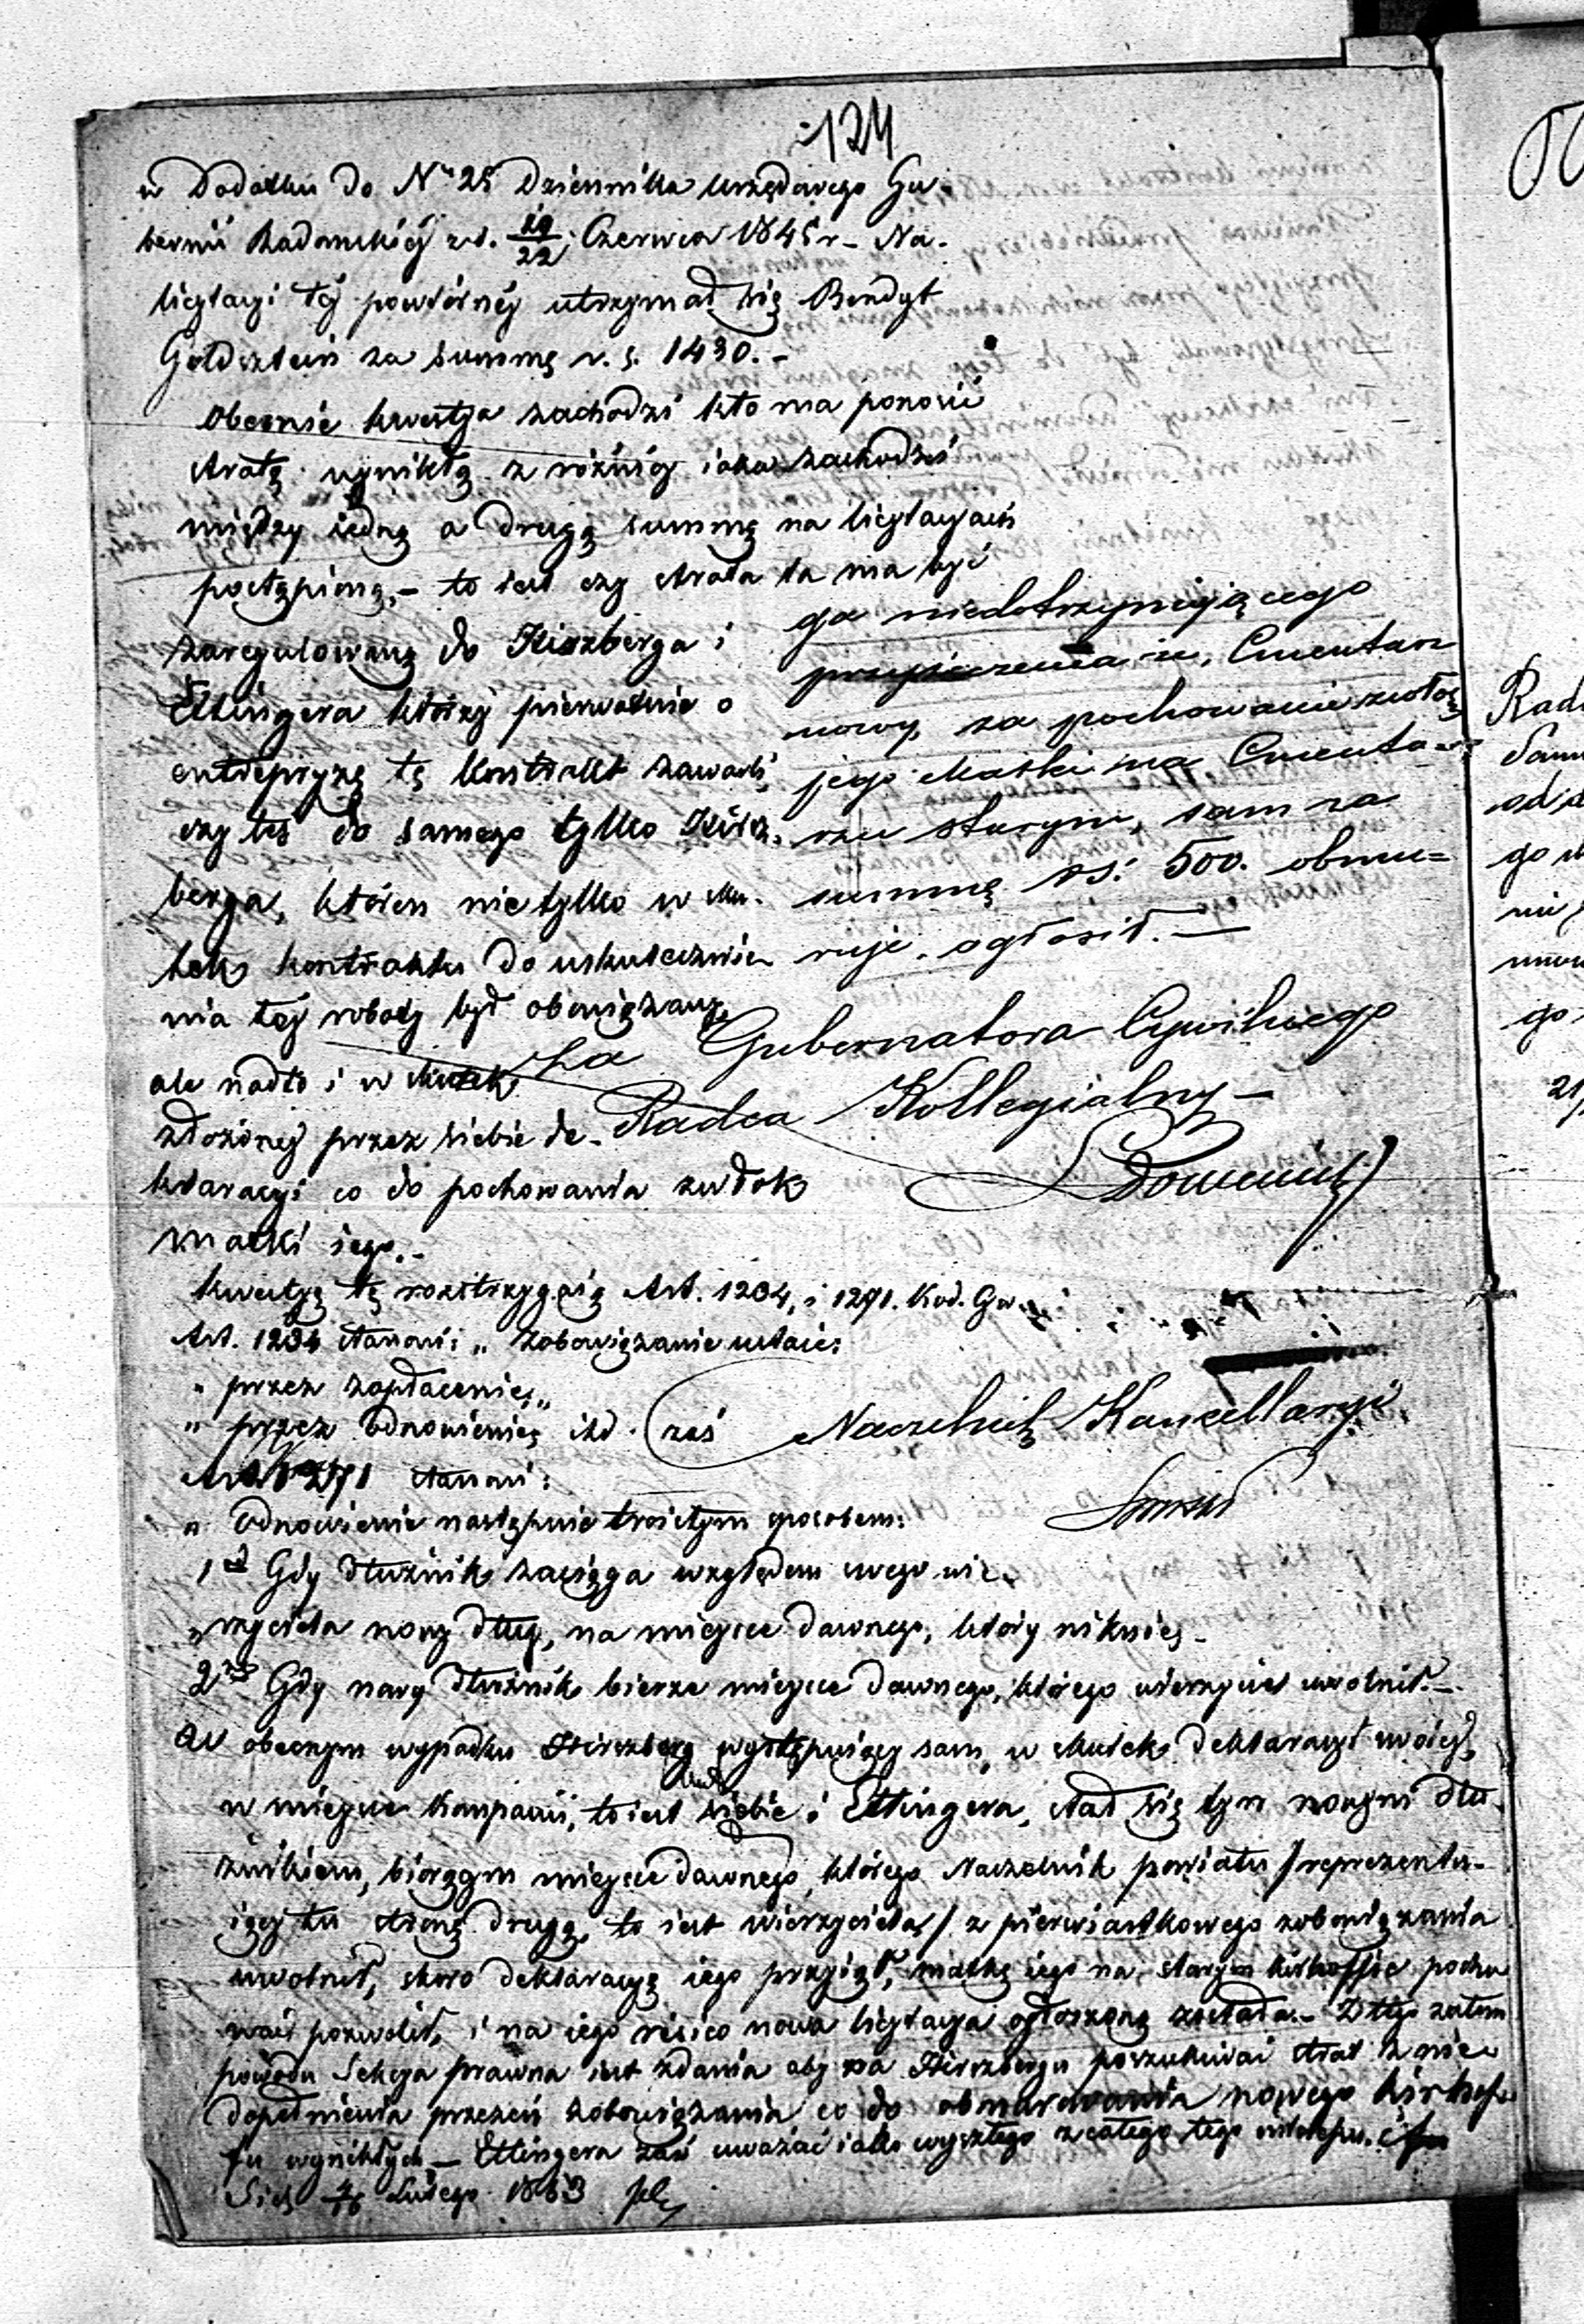 124
w Dodatku do Nru 25 Dziennika Urzędowego Gu-
bernii Radomskiéj z d. 10/22 Czerwca 1845 r - Na
licytacyi téj powtórnéj utrzymał się Bendyt
Goldsztein za summę r. s. 1430. -
Obecnie kwestja zachodzi kto ma ponosić
stratę wynikłą z różnicy iaka zachodzi
między iedną a drugą summą na licytacyach
postąpioną, - to iest czy strata ta ma być
zaregulowaną do Hirszberga i
Ettingera którzy pierwotnie o
entrepryzę tę kontrakt zawarli
czy téż do samego tylko Hirsz-
berga, któren nie tylko w sku-
tek kontraktu do uskutecznie-
nia téj roboty był obowiązany,
ale nadto i w skutek
złożonéj przez siebie de-
klaracyi co do pochowania zwłok
matki iego. -
ga niedotrzymującego
przyrzeczenia iż, Cmentarz
nowy, za pochowanie zwłok
jego Matki na Cmenta-
rzu starym, sam za
summę rs: 500. obmu=
ruje. ogłosił. —
Za Gubernatora Cywilnego
Radca Kollegialny -
Kwestyą tę rozstrzygaią Art. 1234, i 1271. Kod. Cyw.
Art. 1234 stanowi: „ Zobowiązanie ustaie:
„ przez zapłacenie, „
„ przez Odnowienie, itd. (zaś
Art 1271 stanowi:
„ Odnowienie następuie troistym sposobem:
1od Gdy dłużnik zaciąga względem swego wie-
„ rzyciela nowy dług, na mieysce dawnego, który niknie, -
2re Gdy nowy dłużnik bierze mieysce dawnego, którego wierzyciel uwolnił. -
W obecnym wypadku Hirszberg występuiący sam, w skutek deklaracyi swoiéj,
w mieysce kompanii, to iest siebie i Ettingera, stał się tym nowym dłu-
żnikiem, biorącym mieysce dawnego, którego Naczelnik powiatu /reprezentu-
iący tu stronę drugą, to iest wierzyciela/ z pierwiastkowego zobowiązania
uwolnił, skoro deklaracyę iego przyiął, matkę iego na starym kirkoffie pocho
wać pozwolił, i na iego risico nowa licytacya ogłoszoną została. - Z tego zatem
powodu Sekcya prawna iest zdania aby na Hirszbergu poszukiwać strat z nie-
dopełnienia przezeń zobowiązania co do obmurowania nowego kirkof-
fu wynikłych — Ettingera zaś uważać iako wyszłego z całego tego interessu.
Lutego 1853
Naczelnik Kancellaryi